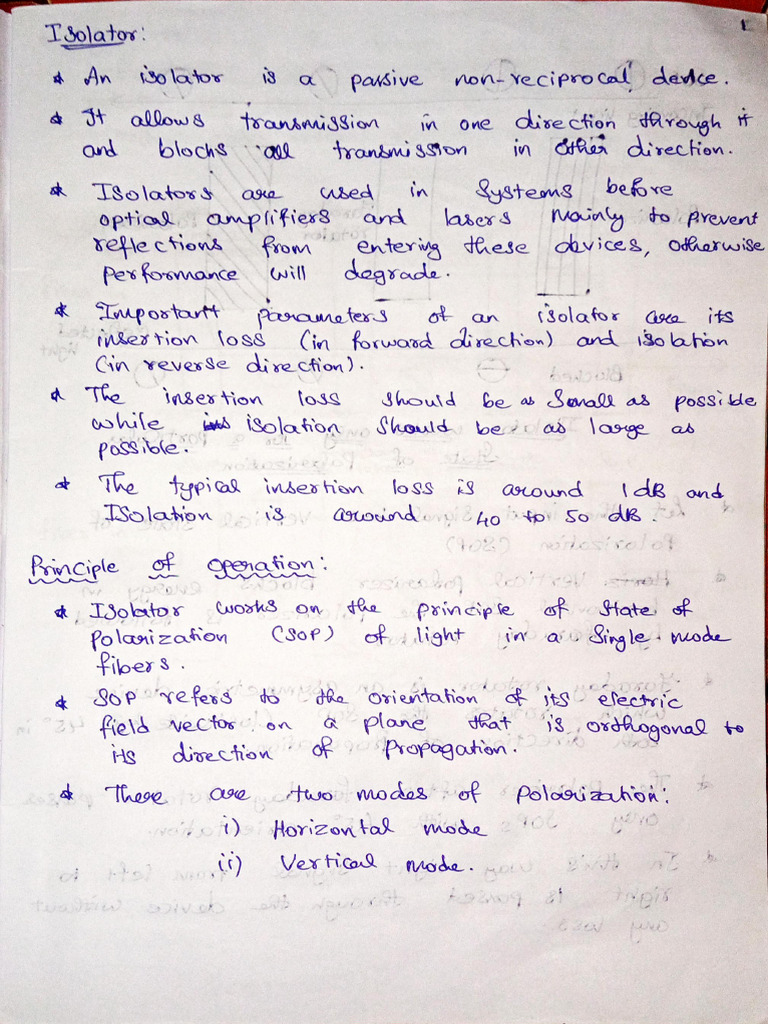 1
Isolator:
* An isolator is a passive non-reciprocal device.
* It allows transmission in one direction through it
and blocks all transmission in other direction.
* Isolators are used in systems before
optical amplifiers and lasers mainly to prevent
reflections from entering these devices, otherwise
performance will degrade.
* Important parameters of an isolator are its
insertion loss (in forward direction) and isolation
(in reverse direction).
* The insertion loss should be as small as possible
while isolation should be as large as
possible.
* The typical insertion loss is around 1dB and
Isolation is around 40 to 50 dB.
Principle of operation:
* Isolator works on the principle of state of
polarization (SOP) of light in a single mode
fibers.
* SOP refers to the orientation of its electric
field vector on a plane that is orthogonal to
its direction of propagation.
* There are two modes of polarization:
i) Horizontal mode
ii) Vertical mode.